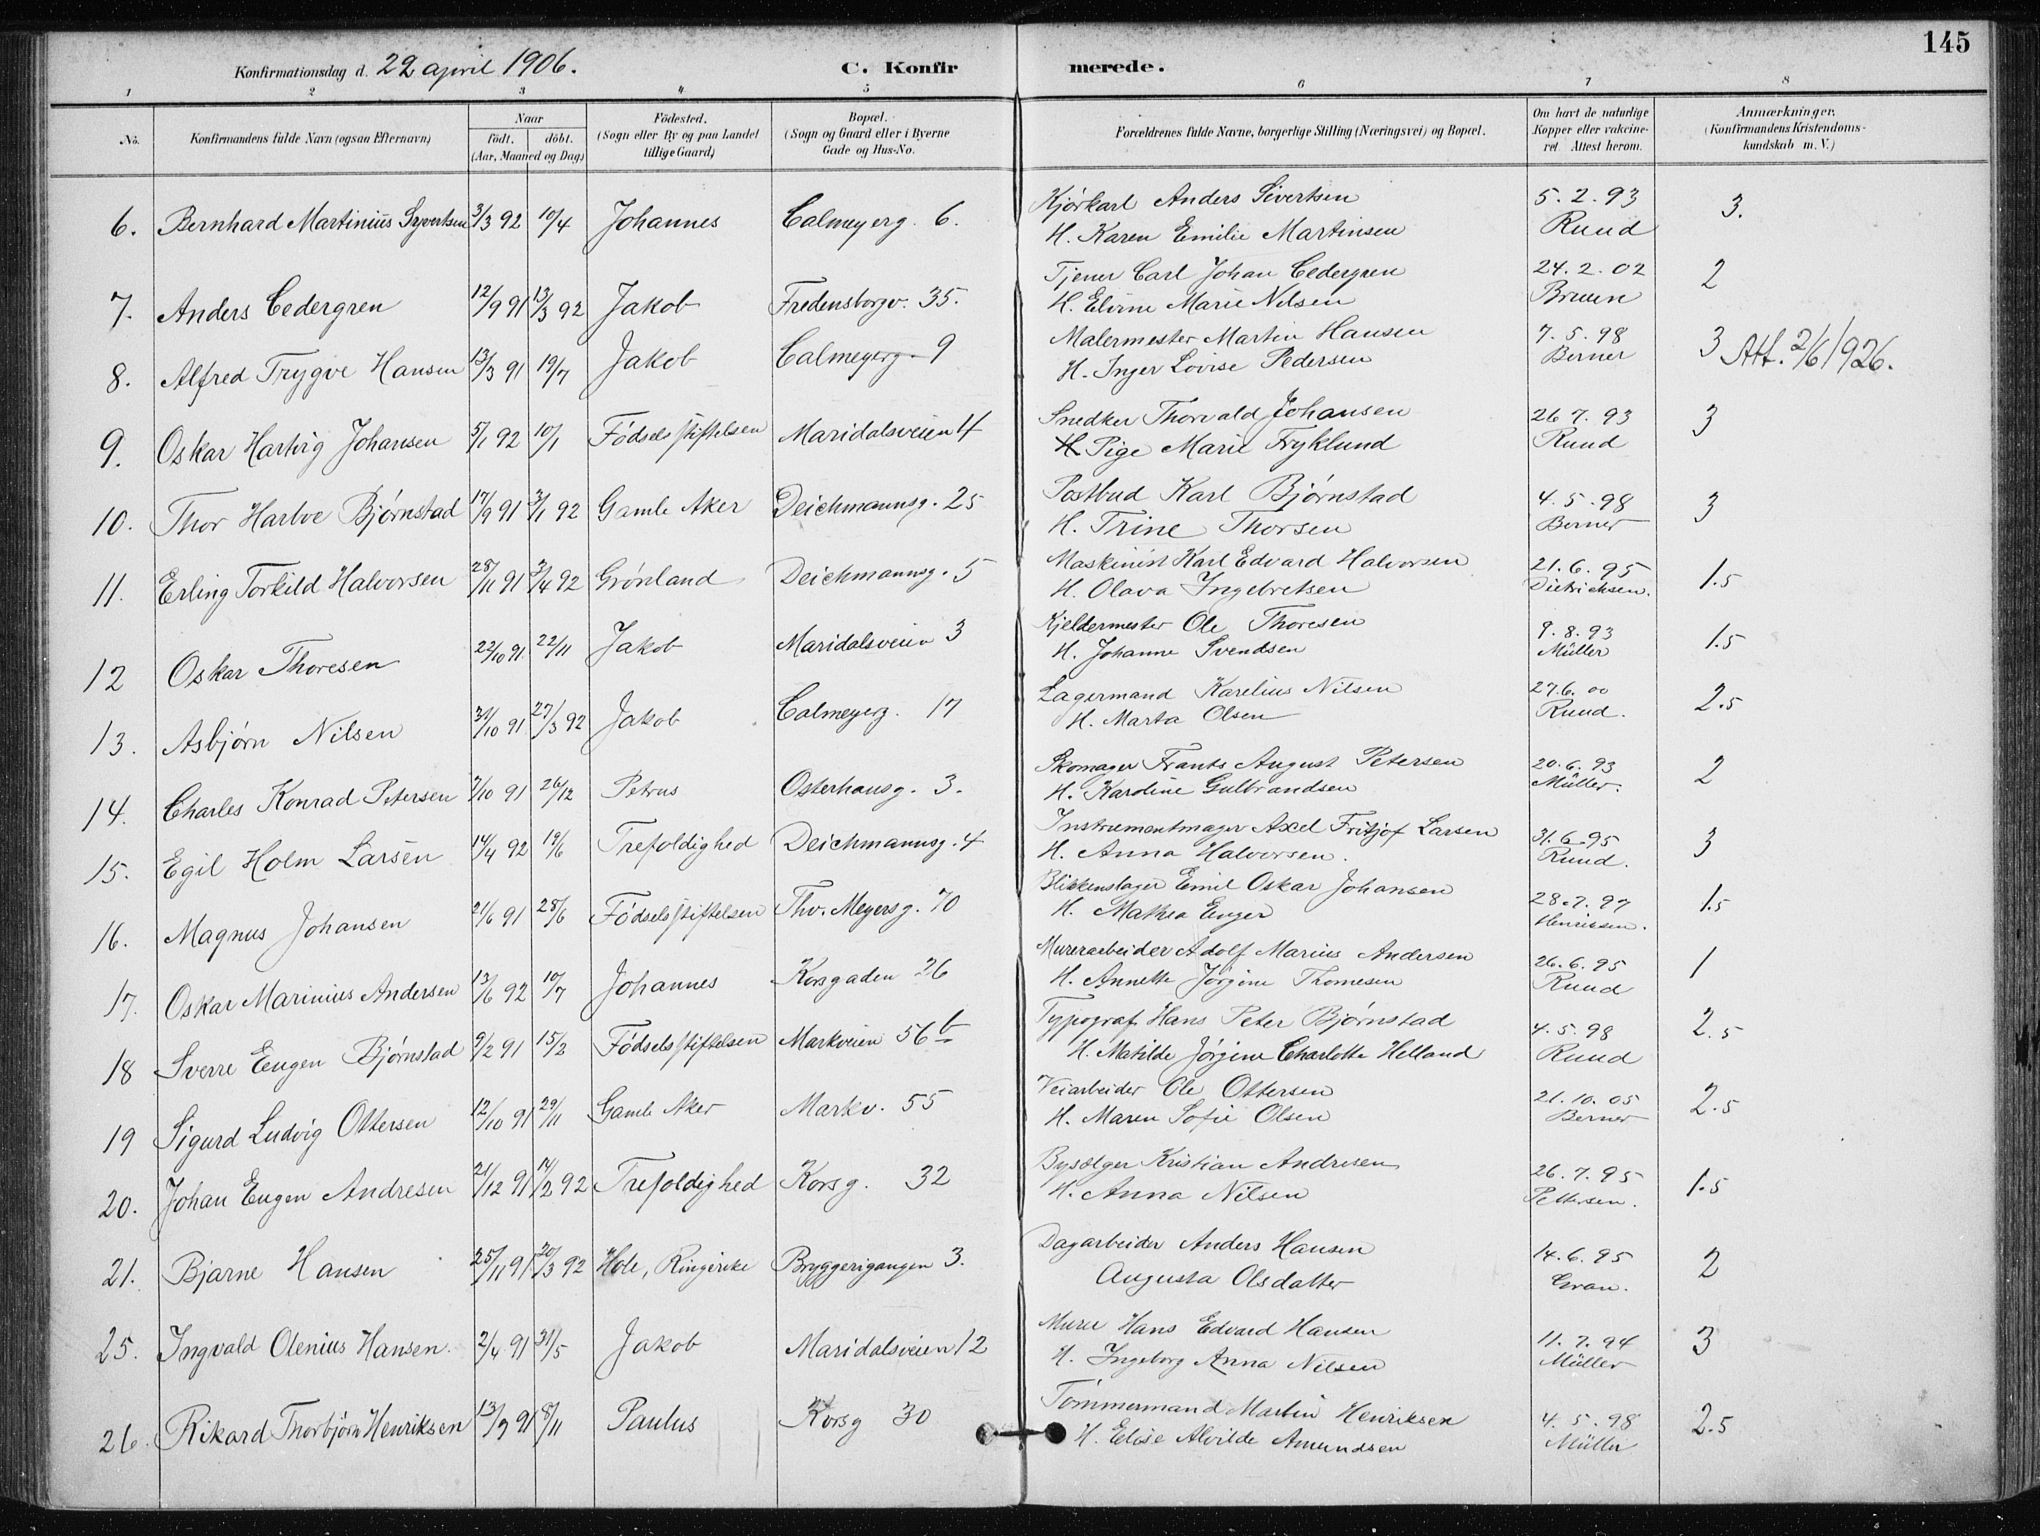 145
Konfirmationsdag d. 22 april 1906. C. Konfirmerede.
1 2 3 4 5 6 7 8
No. Konfirmandens fulde Navn (ogsaa Efternavn) Naar født. døbt. (Aar, Maaned og Dag) Fødested. (Sogn eller By og paa Landet tillige Gaard) Bopæl. (Sogn og Gaard eller i Byerne Gade og Hus-No. Forældrenes fulde Navne, borgerlige Stilling (Næringsvei) og Bopæl. Om havt de naturlige Kopper eller vakcineret Attest herom. Anmærkninger. (Konfirmandens Kristendomskundskab m. V.)
6. Bernhard Martinius Syvertsen 3/3 92 10/4 Johannes Calmeyerg. 6. Kjørkarl Anders Sivertsen 5.2.93 3.
H. Karen Emilie Martinsen Ruud
7. Anders Cedergren 12/9 91 13/3 92 Jakob Fredensborgv. 35. Tjener Carl Johan Cedergren 24.2.02 2
H. Elvine Marie Nilsen Bruun
8. Alfred Trygve Hansen 13/3 91 19/7 Jakob Calmeyerg. 9 Malermester Martin Hansen 7.5.98 3 Att. 2/6 1926.
H. Inger Lovise Pedersen Berner
9. Oskar Hartvig Johansen 5/1 92 10/1 Fødselsstiftelsen Maridalsveien 4 Snedker Thorvald Johansen 26 7.93 3
Pige Marie Fryklund Ruud
10. Thor Harboe Bjørnstad 17/9 91 3/1 92 Gamle Aker Deichmannsg. 25 Postbud Karl Bjørnstad 4.5.98 3
H. Trine Thorsen Berner
11. Erling Torkild Halvorsen 28/11 91 3/4 92 Grønland Deichmannsg. 5 Maskinist Karl Edvard Halvorsen 21.6.95 1.5
H. Olava Ingebretsen Dietrichsen.
12 Oskar Thoresen 22/10 91 22/11 Jakob Maridalsveien 3 Kjeldermester Ole Thoresen 9.8.93 1.5
H. Johanne Svendsen Müller
13. Asbjørn Nilsen 31/10 91 27/3 92 Jakob Calmeyerg. 17 Lagermand Karelius Nilsen 27.6.00 2.5
H. Marta Olsen Ruud.
14. Charles Konrad Petersen 7/10 91 26/12 Petrus Osterhausg. 3. Skomager Frants August Petersen 20.6.93 2
H. Karoline Gulbrandsen Müller.
15. Egil Holm Larsen 14/4 92 19/6 Trefoldighed Deichmannsg. 4 Instrumentmager Axel Fritjof Larsen 31.6.95 3
H. Anna Halvorsen. Ruud.
16. Magnus Johansen 21/6 91 28/6 Fødselsstiftelsen Thv. Meyersg. 70 Blikkenslager Emil Oskar Johansen 28.7.97 1.5
H. Mathea Enger Henriksen.
17. Oskar Marinius Andersen 13/6 92 10/7 Johannes Korsgaden 26 Murerarbeider Adolf Marius Andersen 26.6.95 1
H. Annette Jørgine Thomesen Ruud
18 Sverre Eugen Bjørnstad 9/2 91 15/2 Fødselsstiftelsen Markveien 56 b Typograf Hans Peter Bjørnstad 4.5.98 2.5
H. Matilde Jørgine Charlotte Helland Ruud
19 Sigurd Ludvig Ottersen 12/10 91 29/11 Gamle Aker Markv. 55 Veiarbeider Ole Ottersen 21.10.05 2.5
H. Maren Sofie Olsen Berner
20. Johan Eugen Andresen 21/12 91 14/2 92 Trefoldighed Korsg. 32 Bysælger Kristian Andresen 26.7.95 1.5
H. Anna Nilsen Pettersen.
21. Bjarne Hansen 25/11 91 20/3 92 Hole, Ringerike Bryggerigangen 3. Dagarbeider Anders Hansen 14.6.95 2
Augusta Olsdatter Gran.
25. Ingvald Olenius Hansen. 2/4 91 31/5 Jakob Maridalsveien 12 Murer Hans Edvard Hansen 11.7.94 3
H. Ingeborg Anna Nilsen Müller
26. Rikard Thorbjørn Henriksen 13/9 91 8/11 Paulus Korsg 30 Tømmermand Martin Henriksen 4.5.98 2.5
H. Elise Alvilde Amundsen Müller